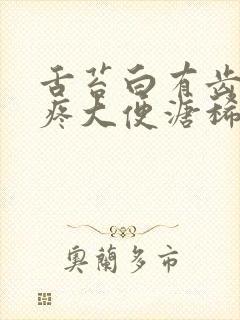 舌苔白有齿
疼大便溏稀
奥蘭多市